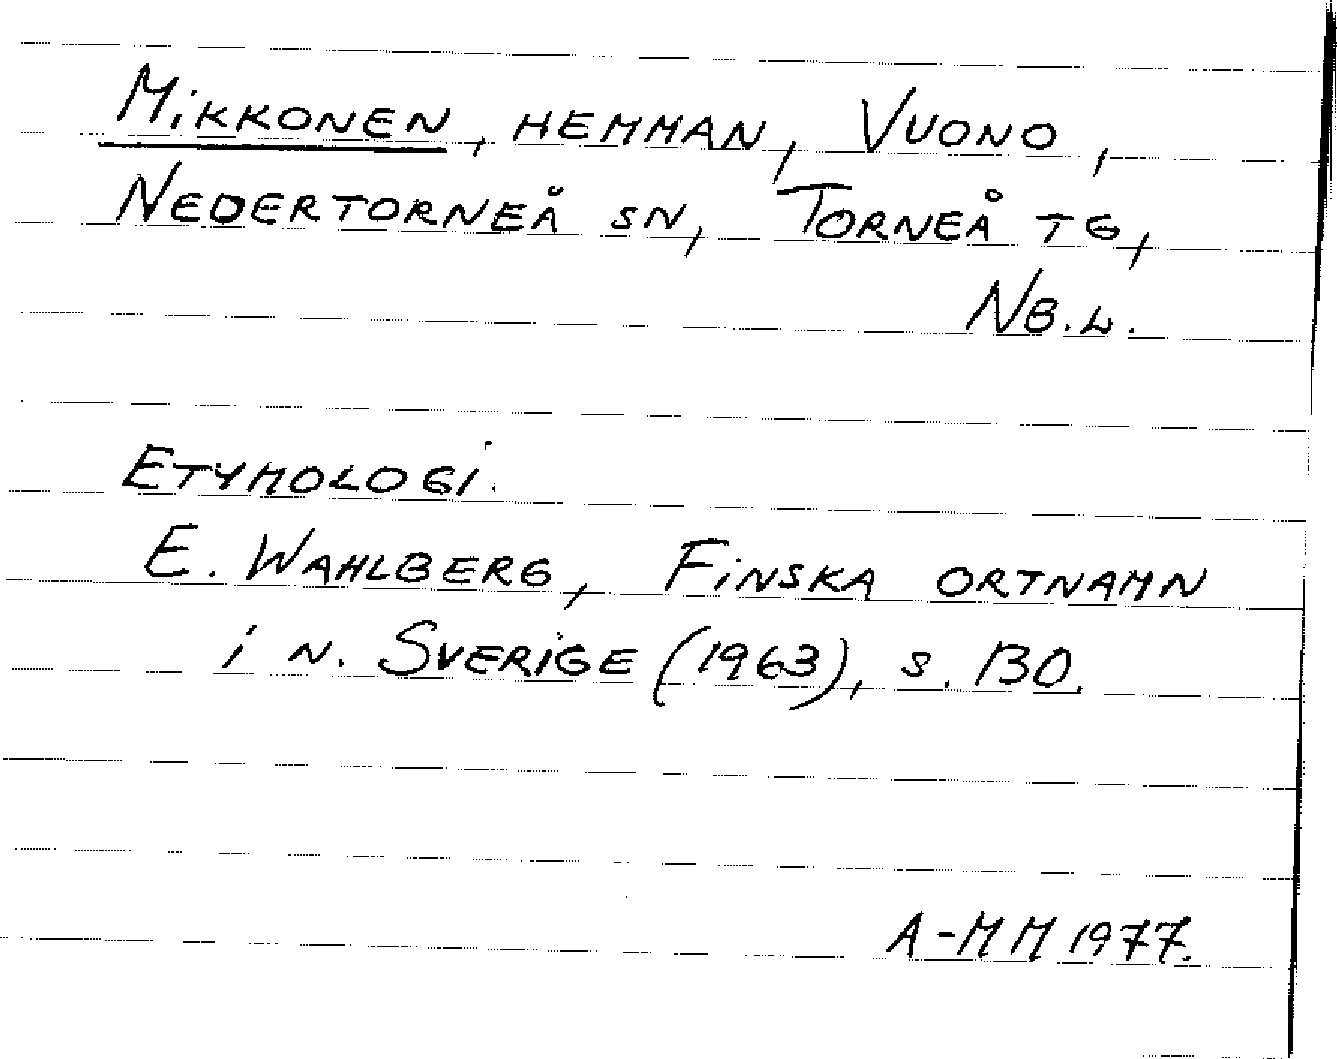 Mikkonen, hemman, Vuono,
Nedertorneå sn, Torneå tg,
Nb.l.
Etymologi.
E. Wahlberg, Finska ortnamn
i n. Sverige (1963), s. 130.
A-MM 1977.